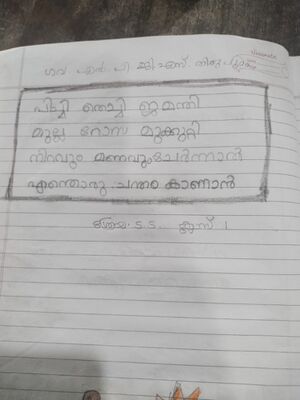 ഗവ. എൽ. പി
പിച്ചി തെച്ചി ജമന്തി
മുല്ല റോസ മുക്കുറ്റി
നിറവും മണവുംചേർന്നാൽ
എന്തൊരു ചന്തം കാണാൻ
എസ്. ക്ലാസ് 1